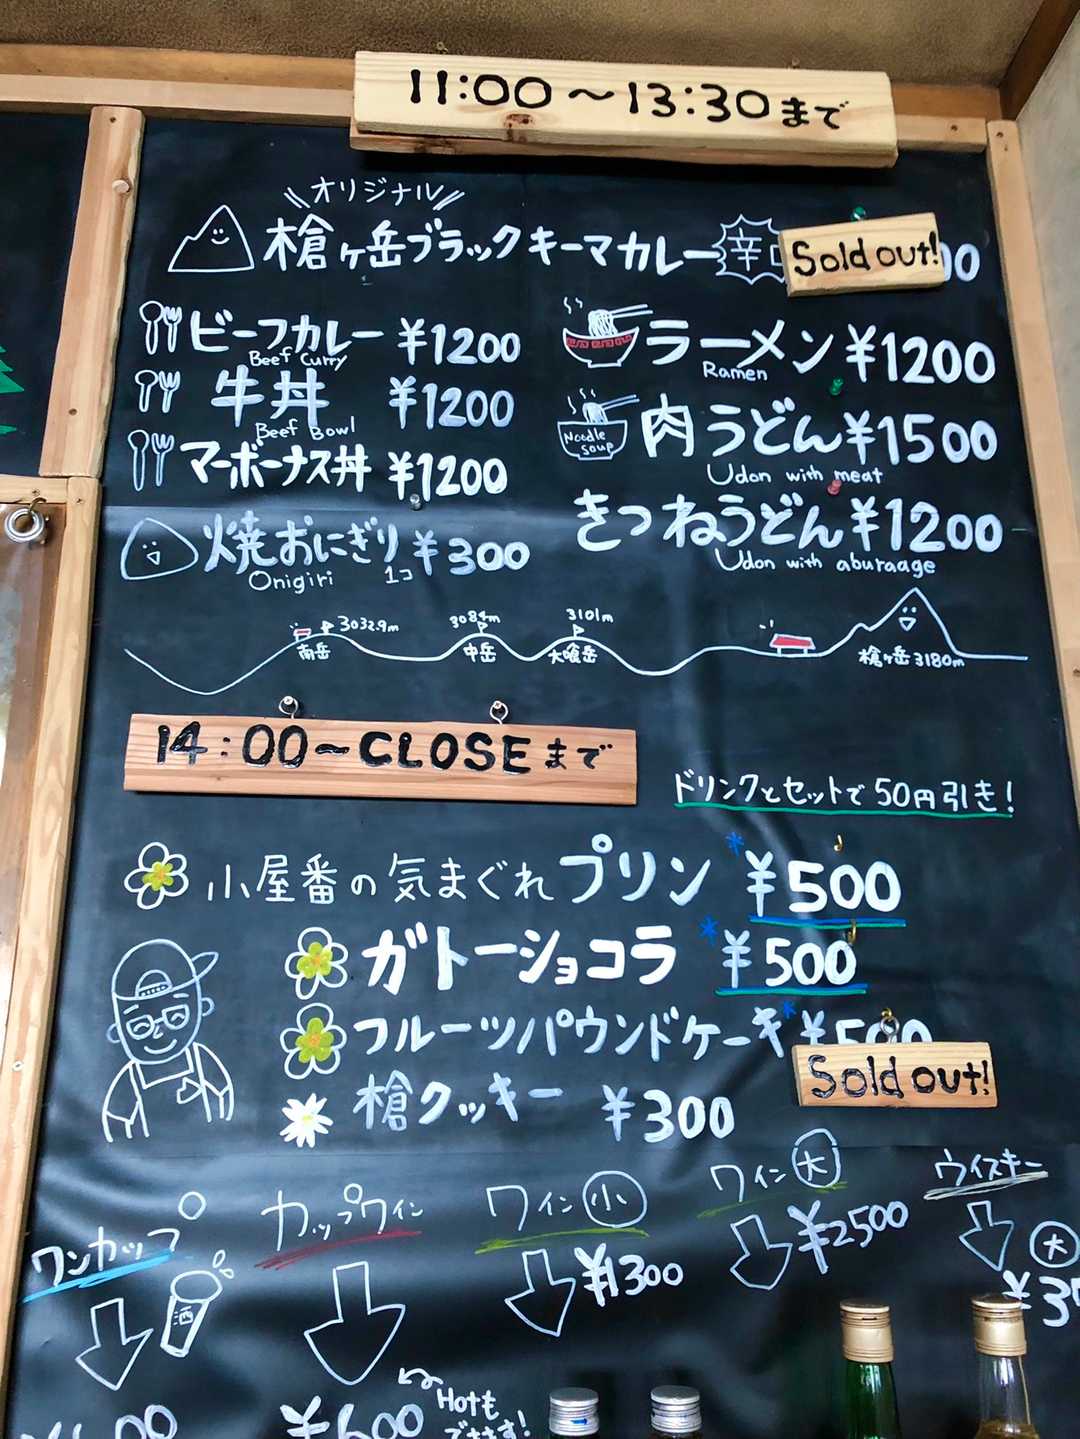 11:00〜13:30まで
オリジナル
槍ヶ岳ブラックキーマカレー 辛口 Sold out! 00
ビーフカレー ¥1200
Beef Curry
牛丼 ¥1200
Beef Bowl
マーボーナス丼 ¥1200
焼おにぎり 1コ ¥300
Onigiri
ラーメン ¥1200
Ramen
Noodle soup
肉うどん ¥1500
Udon with meat
きつねうどん ¥1200
Udon with aburaage
3032.9m 3084m 3101m
南岳 中岳 大喰岳 槍ヶ岳 3180m
14:00〜CLOSEまで
ドリンクとセットで50円引き!
小屋番の気まぐれプリン *¥500
ガトーショコラ *¥500
フルーツパウンドケーキ *¥500
Sold out!
槍クッキー ¥300
ワンカップ カップワイン ワイン小 ワイン大 ウイスキー
酒 ¥1300 ¥2500 大
¥600 Hotも
できます!